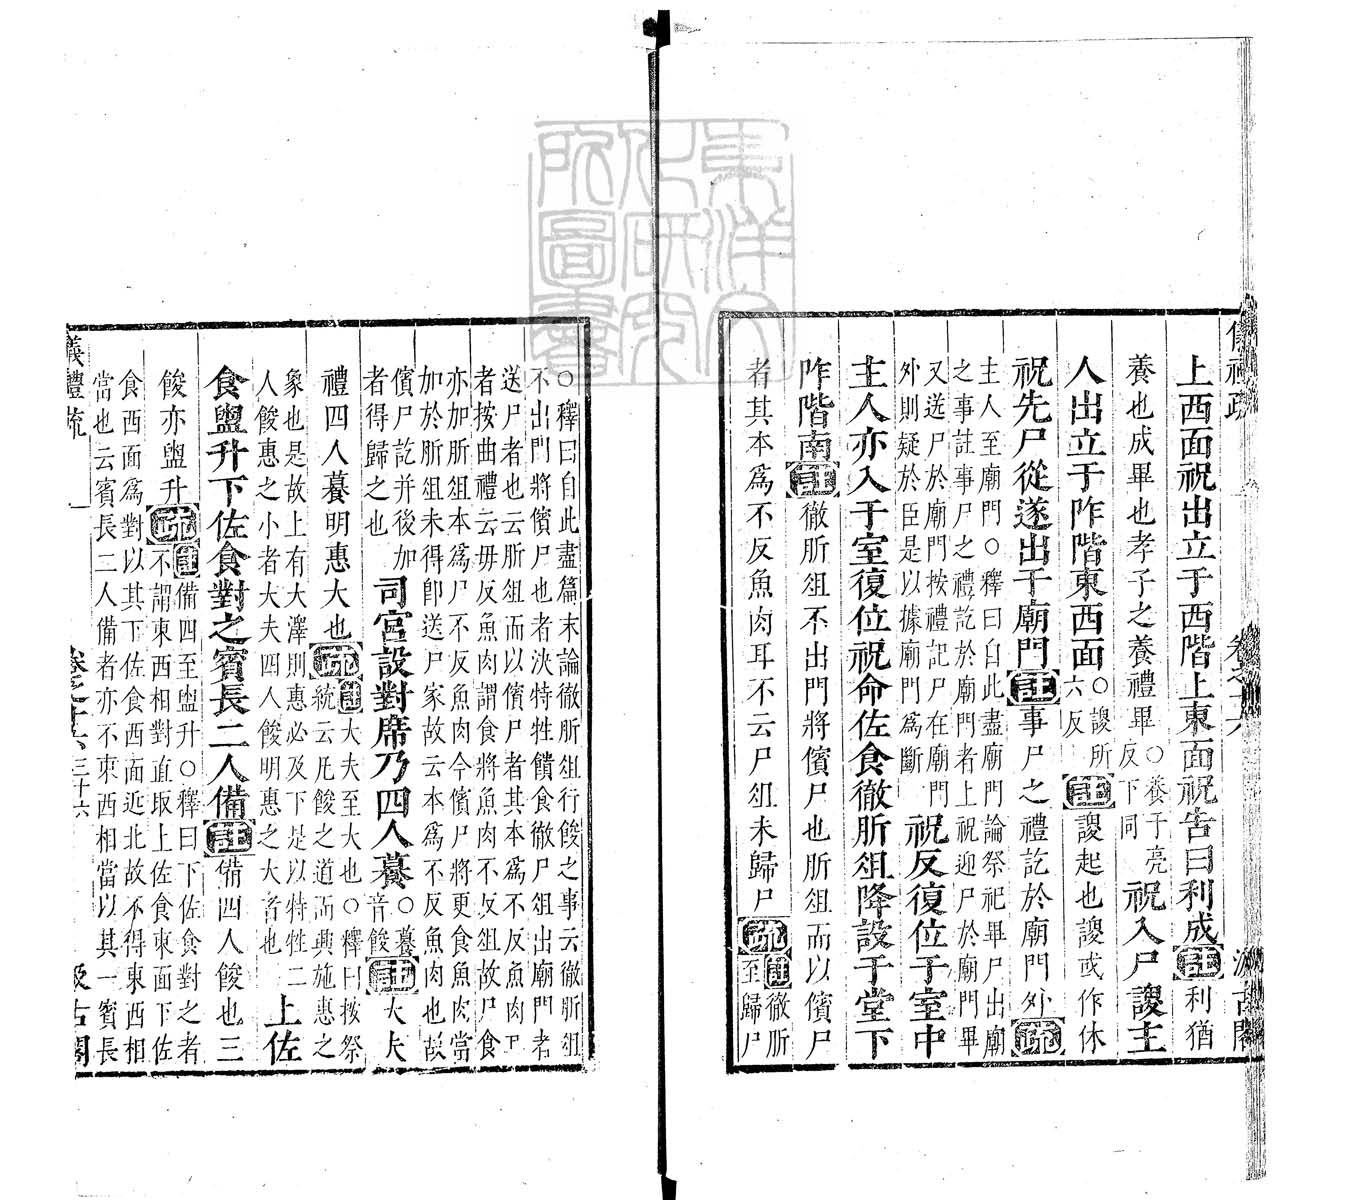 上西面祝出立于西階上東面祝告曰利成註利猶
養也成畢也孝子之養禮畢○養于亮
反下同祝入尸謖主
人出立于阼階東西面○謖所
六反註謖起也謖或作休
祝先尸從遂出于廟門註事尸之禮訖於廟門外疏
主人至廟門○釋曰自此盡廟門論祭祀畢尸出廟
之事註事尸之禮訖於廟門者上祝迎尸於廟門畢
又送尸於廟門按禮記尸在廟門
外則疑於臣是以據廟門爲斷祝反復位于室中
主人亦入于室復位祝命佐食徹肵俎降設于堂下
阼階南註徹肵俎不出門將儐尸也肵俎而以儐尸
者其本爲不反魚肉耳不云尸俎未歸尸疏註徹肵
至歸尸
○釋曰自此盡篇末論徹肵俎行餕之事云徹肵俎
不出門將儐尸也者決特牲饋食徹尸俎出廟門者
送尸者也云肵俎而以儐尸者其本爲不反魚肉耳
者按曲禮云毋反魚肉謂食將魚肉不反俎故尸食
亦加肵俎本爲尸不反魚肉今儐尸將更食魚肉當
加於肵俎未得卽送尸家故云本爲不反魚肉也故
儐尸訖并後加
者得歸之也司宮設對席乃四人䭆○䭆
音餕註大夫
禮四人䭆明惠大也疏註大夫至大也○釋曰按祭
統云凡餕之道而興施惠之
象也是故上有大澤則惠必及下是以特牲二
人餕惠之小者大夫四人餕明惠之大者也上佐
食盥升下佐食對之賓長二人備註備四人餕也三
餕亦盥升疏註備四至盥升○釋曰下佐食對之者
不謂東西相對直取上佐食東面下佐
食西面爲對以其下佐食西面近北故不得東西相
當也云賓長二人備者亦不東西相當以其一賓長
儀禮疏 卷之十六 三十六 汲古閣